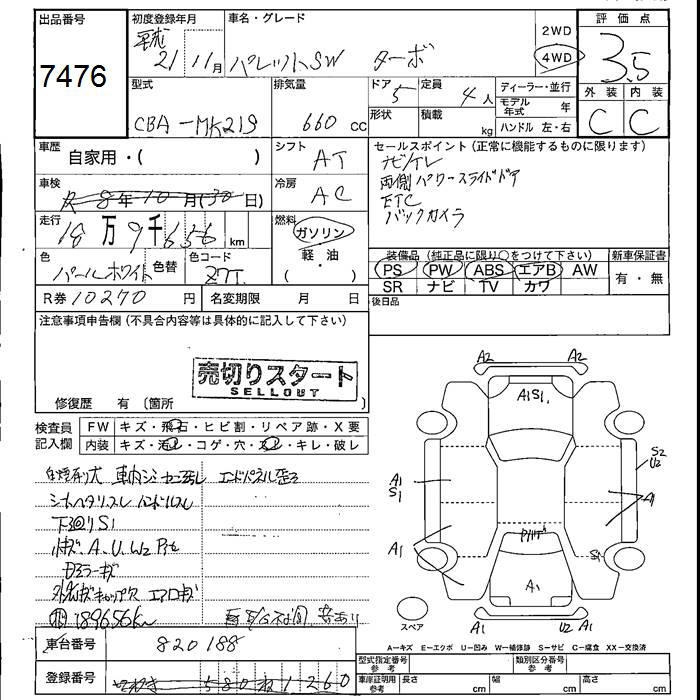 出品番号
7476
初度登録年月
平成
21 11月
車名・グレード
パレットSW ターボ
2WD
4WD
評価点
3.5
外装 内装
C C
型式
CBA-MK21S
排気量
660 cc
ドア 5
形状
定員
4人
積載
kg
ディーラー・並行
モデル年式 年
ハンドル 左・右
車歴
自家用・( )
シフト
AT
セールスポイント(正常に機能するものに限ります)
ナビ/TV
両側パワースライドドア
ETC
バックカメラ
車検
8年10月(30日)
冷房
AC
走行
18万9千656km
燃料
ガソリン
・軽・油
( )
色
パールホワイト
色替
色コード
Z7T
装備品(純正品に限り○をつけて下さい)
PS PW ABS エアB AW
SR ナビ TV カワ
新車保証書
有・無
R券 10270 円
名変期限 月 日
後日品
注意事項申告欄(不具合内容等は具体的に記入して下さい)
売切りスタート
SELLOUT
修復歴 有(箇所
検査員記入欄
FW キズ・飛石・ヒビ割・リペア跡・X要
内装 キズ・汚れ・コゲ・穴・スレ・キレ・破レ
シートヘタリスレ ハンドルスレ
下廻りS1
189656km
車台番号
820188
登録番号
580 1260
A2 A2
A1S1
A1
S1
S2
U2
A1
A1
S1
A1
A1
U2 A1
スペア
A-キズ E-エクボ U-凹み W-補修跡 S-サビ C-腐食 XX-交換済
型式指定番号
参考
類別区分番号
参考
車庫証明用
参考
長さ cm
幅 cm
高さ cm